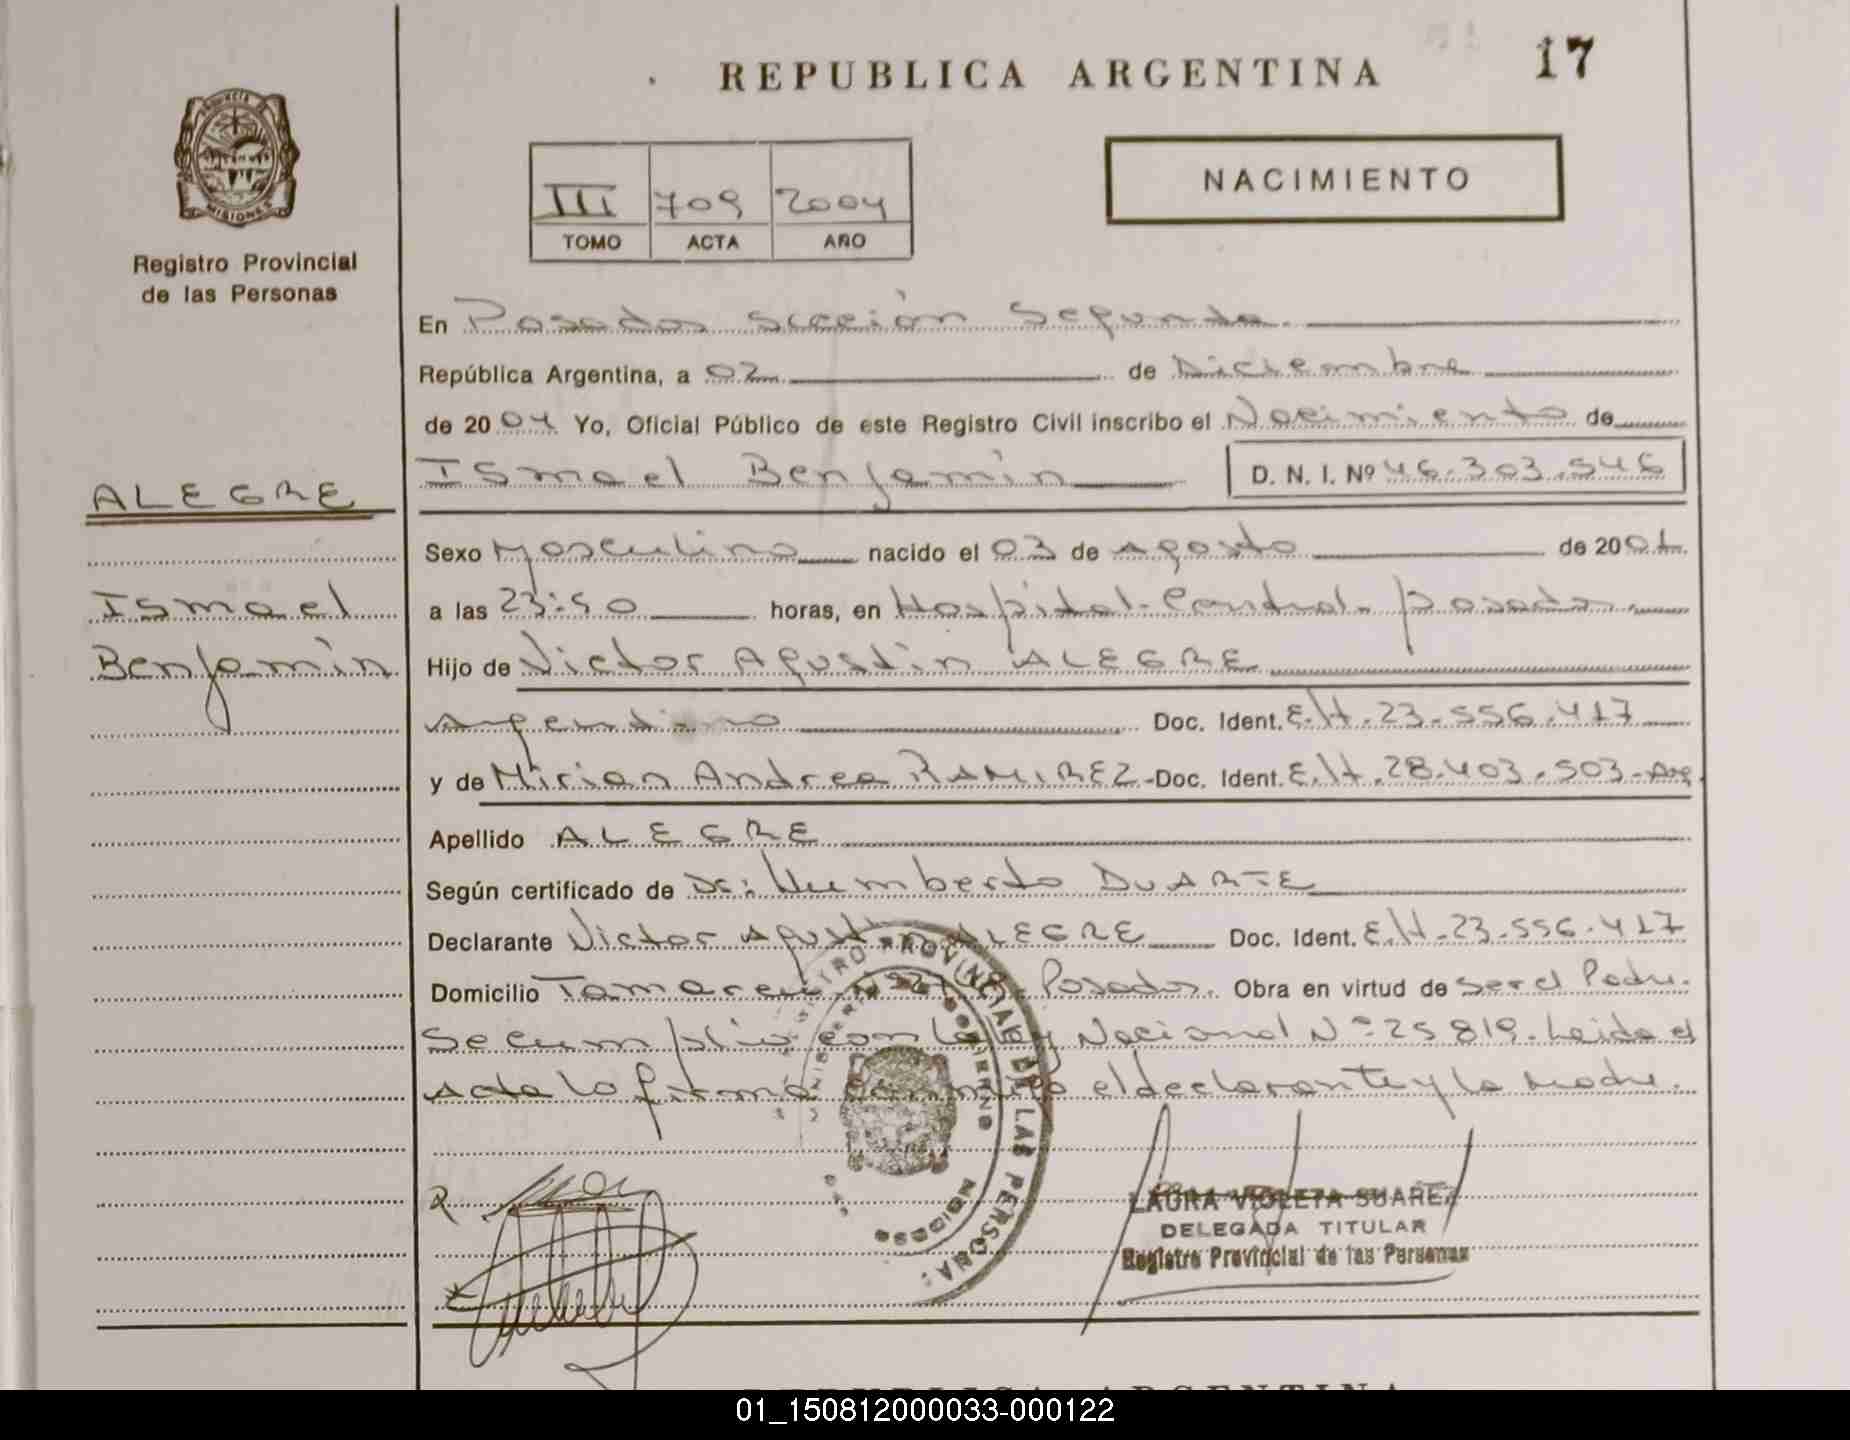 REPUBLICA ARGENTINA
17
PROVINCIA DE
MISIONES
Registro Provincial
de las Personas
NACIMIENTO
III 709 2004
TOMO ACTA AÑO
En Posadas sección Segunda.
República Argentina, a 02 de Diciembre
de 2004 Yo, Oficial Público de este Registro Civil inscribo el Nacimiento de
Ismael Benjamin D. N. I. Nº 46.303.546
ALEGRE
Ismael
Benjamin
Sexo Masculino nacido el 03 de Agosto de 2001.
a las 23:50 horas, en Hospital Central Posadas.
Hijo de Victor Agustin ALEGRE
Argentino Doc. Ident. E.H.23.556.417
y de Mirian Andrea RAMIREZ-Doc. Ident. E.H.28.403.503-Arg.
Apellido ALEGRE
Según certificado de Dr: Humberto DUARTE
Declarante Victor Agustin ALEGRE Doc. Ident. E.H.23.556.417
Domicilio Posadas. Obra en virtud de ser el Padre.
Se cumplio con la ley Nacional Nº 25819. Leida el
acta la firma conmigo el declarante y la madre.
REGISTRO PROVINCIAL DE LAS PERSONAS
MINISTERIO DE GOBIERNO
LAURA VIOLETA SUAREZ
DELEGADA TITULAR
Registro Provincial de las Personas
REPUBLICA ARGENTINA
01_150812000033-000122